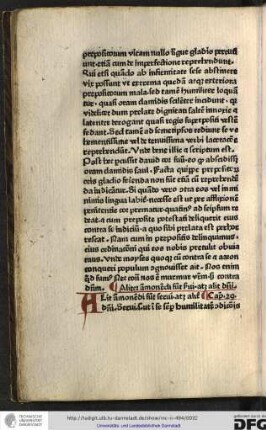 prepositorum vitam nullo ligue gladio percuti
unt etiā cum de imperfectione reprehendunt.
Qui etsi quādo ab infirmitate sese abstinere
vix possunt ut extrema quedam atque exteriora
prepositorum mala sed tamē humiliter loquā
tur. quasi oram clamidis silēter incidunt. quia
videlicet dum prelate dignitati saltē innoxie et
latenter derogant quasi regis superpositi vestē
fedant. Sed tamē ad semetipsos redeunt se ve
hementissime vel de tenuissima verbi laceratōe
reprehendunt. Unde bene illic et scriptum est.
Post hec percussit david cor suū eo quod abscidisset
oram clamidis saul. Facta quippe prepositorum
oris gladio ferienda non sūt etiā cū reprehendē
da iudicātur. Si quādo vero otra eos vel in mi
nimis lingua labit necesse est ut per afflictionē
penitentie cor prematur quatinus ad seipsum re
deat et cum preposite potestati deliquerit eius
contra se iudicium a quo sibi prelata est perhor
rescat. Nam cum in prepositis delinquimus
eius ordinationi qui eos nobis pretulit obuia
mus. Unde moyses quoque cū contra se et aaron
conqueri populum cognouisset ait. Nos enim
quid sumus Nec contra nos est murmur vestrum sed contra
dominum.